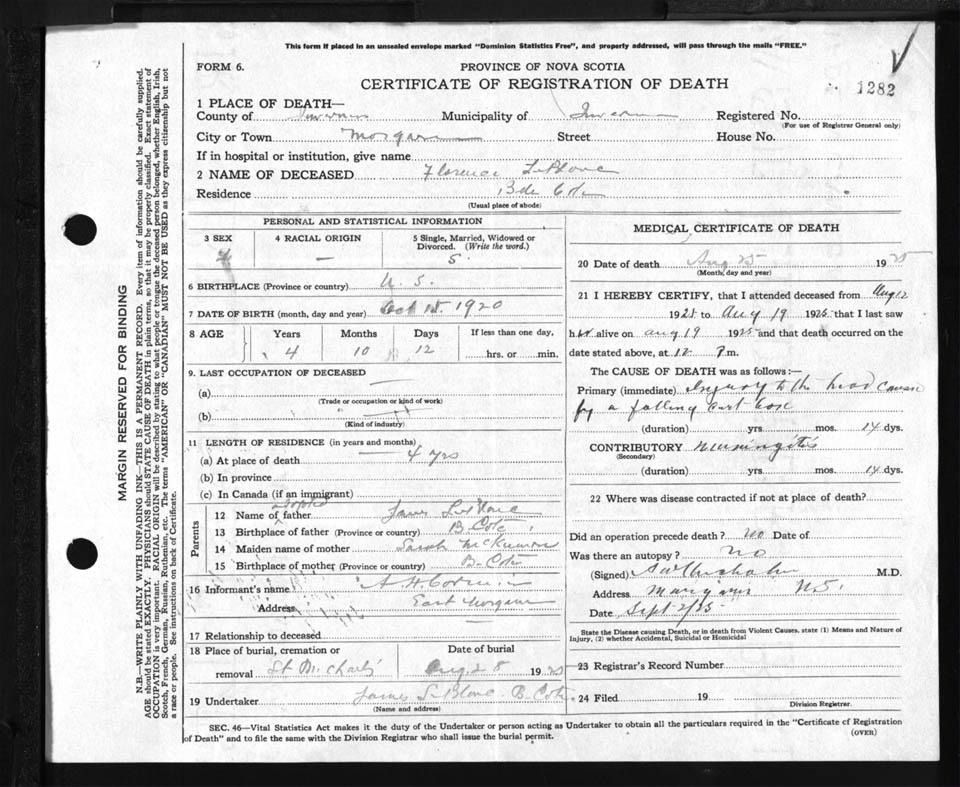 This form if placed in an unsealed envelope marked "Dominion Statistics Free", and properly addressed, will pass through the mails "FREE."
FORM 6.
PROVINCE OF NOVA SCOTIA
CERTIFICATE OF REGISTRATION OF DEATH
1282
1 PLACE OF DEATH—
County of Inverness Municipality of Inverness Registered No.
(For use of Registrar General only)
City or Town Margaree Street House No.
If in hospital or institution, give name
2 NAME OF DECEASED Florence LeBlanc
Residence B de Cote
(Usual place of abode)
PERSONAL AND STATISTICAL INFORMATION
3 SEX 4 RACIAL ORIGIN 5 Single, Married, Widowed or Divorced. (Write the word.)
— S.
6 BIRTHPLACE (Province or country) N. S.
7 DATE OF BIRTH (month, day and year) Oct 15 1920
8 AGE Years Months Days If less than one day,
4 10 12 hrs. or min.
9. LAST OCCUPATION OF DECEASED
(a)
(Trade or occupation or kind of work)
(b)
(Kind of industry)
11 LENGTH OF RESIDENCE (in years and months)
(a) At place of death 4 yrs
(b) In province
(c) In Canada (if an immigrant)
Parents
adopted
12 Name of father James LeBlanc
13 Birthplace of father (Province or country) B. Cote
14 Maiden name of mother Sarah McKinnon
15 Birthplace of mother (Province or country) B. Cote
16 Informant's name A H Cormier
Address East Margaree
17 Relationship to deceased
18 Place of burial, cremation or removal St Mcharls' Date of burial Aug 28 1925
19 Undertaker James LeBlanc B. Cote
(Name and address)
MEDICAL CERTIFICATE OF DEATH
20 Date of death Aug 25 1925
(Month, day and year)
21 I HEREBY CERTIFY, that I attended deceased from Aug 12
1925 to Aug 19 1925 that I last saw
her alive on Aug 19 1925 and that death occurred on the
date stated above, at 12 P m.
The CAUSE OF DEATH was as follows:—
Primary (immediate) Injury to the head cause
by a falling cart box
(duration) yrs. mos. 14 dys.
CONTRIBUTORY Meningitis
(Secondary)
(duration) yrs. mos. 14 dys.
22 Where was disease contracted if not at place of death?
Did an operation precede death? No Date of
Was there an autopsy? No
(Signed) M.D.
Address Margaree N.S.
Date Sept 2/25
State the Disease causing Death, or in death from Violent Causes, state (1) Means and Nature of Injury, (2) whether Accidental, Suicidal or Homicidal
23 Registrar's Record Number
24 Filed 19
Division Registrar.
SEC. 46—Vital Statistics Act makes it the duty of the Undertaker or person acting as Undertaker to obtain all the particulars required in the "Certificate of Registration
of Death" and to file the same with the Division Registrar who shall issue the burial permit.
(OVER)
MARGIN RESERVED FOR BINDING
N.B.—WRITE PLAINLY WITH UNFADING INK—THIS IS A PERMANENT RECORD. Every item of information should be carefully supplied.
AGE should be stated EXACTLY. PHYSICIANS should STATE CAUSE OF DEATH in plain terms, so that it may be properly classified. Exact statement of
OCCUPATION is very important. RACIAL ORIGIN will be described by stating to what people or tongue the deceased person belonged, whether English, Irish,
Scotch, French, German, Russian, Ruthenian, etc. The terms "AMERICAN" OR "CANADIAN" MUST NOT BE USED as they express citizenship but not
a race or people. See instructions on back of Certificate.